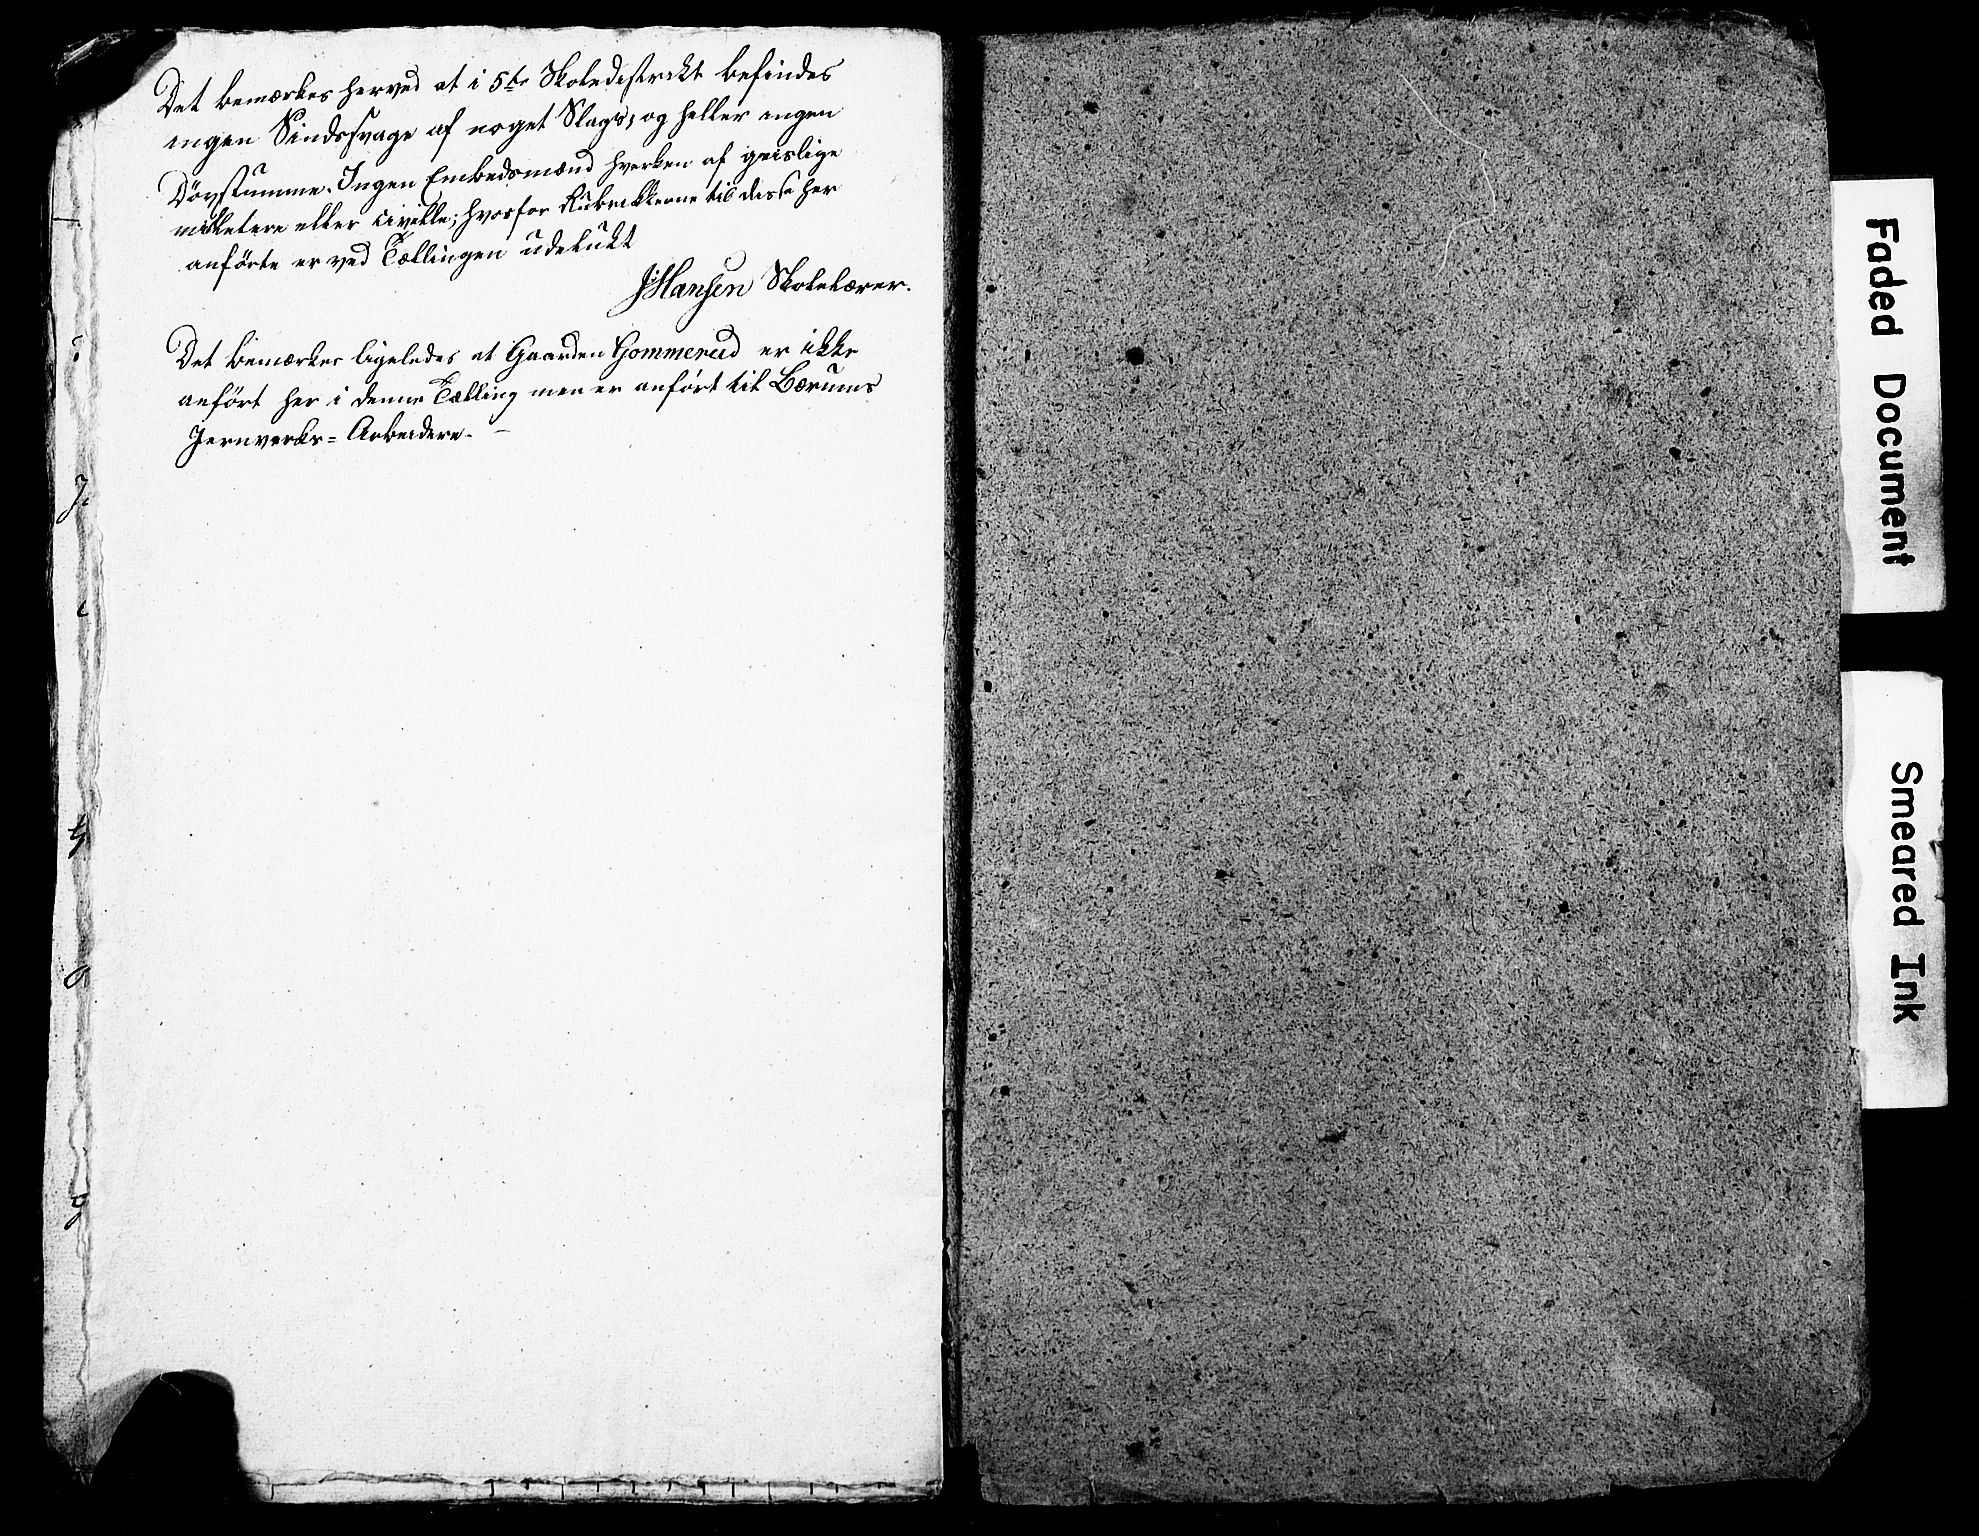 Det bemærkes herved at i 5te Skoledistrikt befindes
ingen Sindssvage af noget Slags, og heller ingen
Døvstumme. Ingen Embedsmænd hverken af geislige
milletere eller civille; hvorfor Rubrikkerne til disse her
anförte er ved Tællingen udelukt
JHansen Skolelærer.
Det bemærkes ligeledes at Gaarden Gommerud er ikke
anfört her i denne Tælling men er anfört til Bærums
Jernverks=Arbeidere.
Faded Document
Smeared Ink